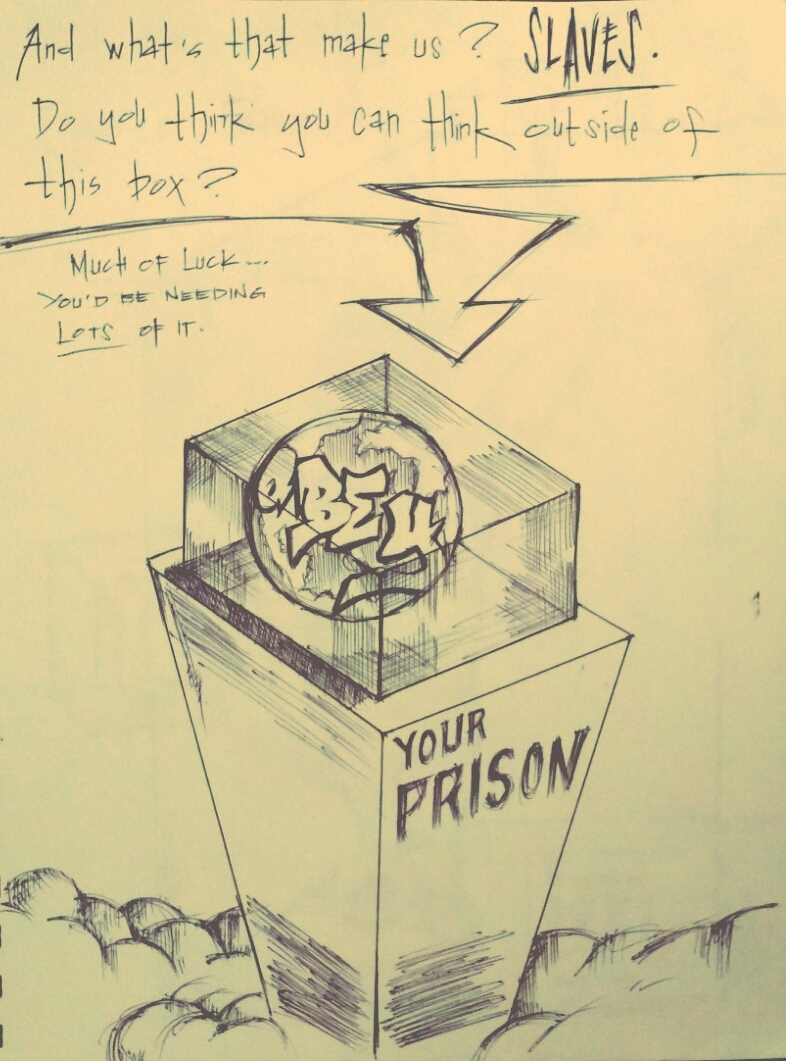 And what's that make us? SLAVES.
Do you think you can think outside of
this box?
MUCH OF LUCK....
YOU'D BE NEEDING
LOTS OF IT.
OBEY
YOUR
PRISON